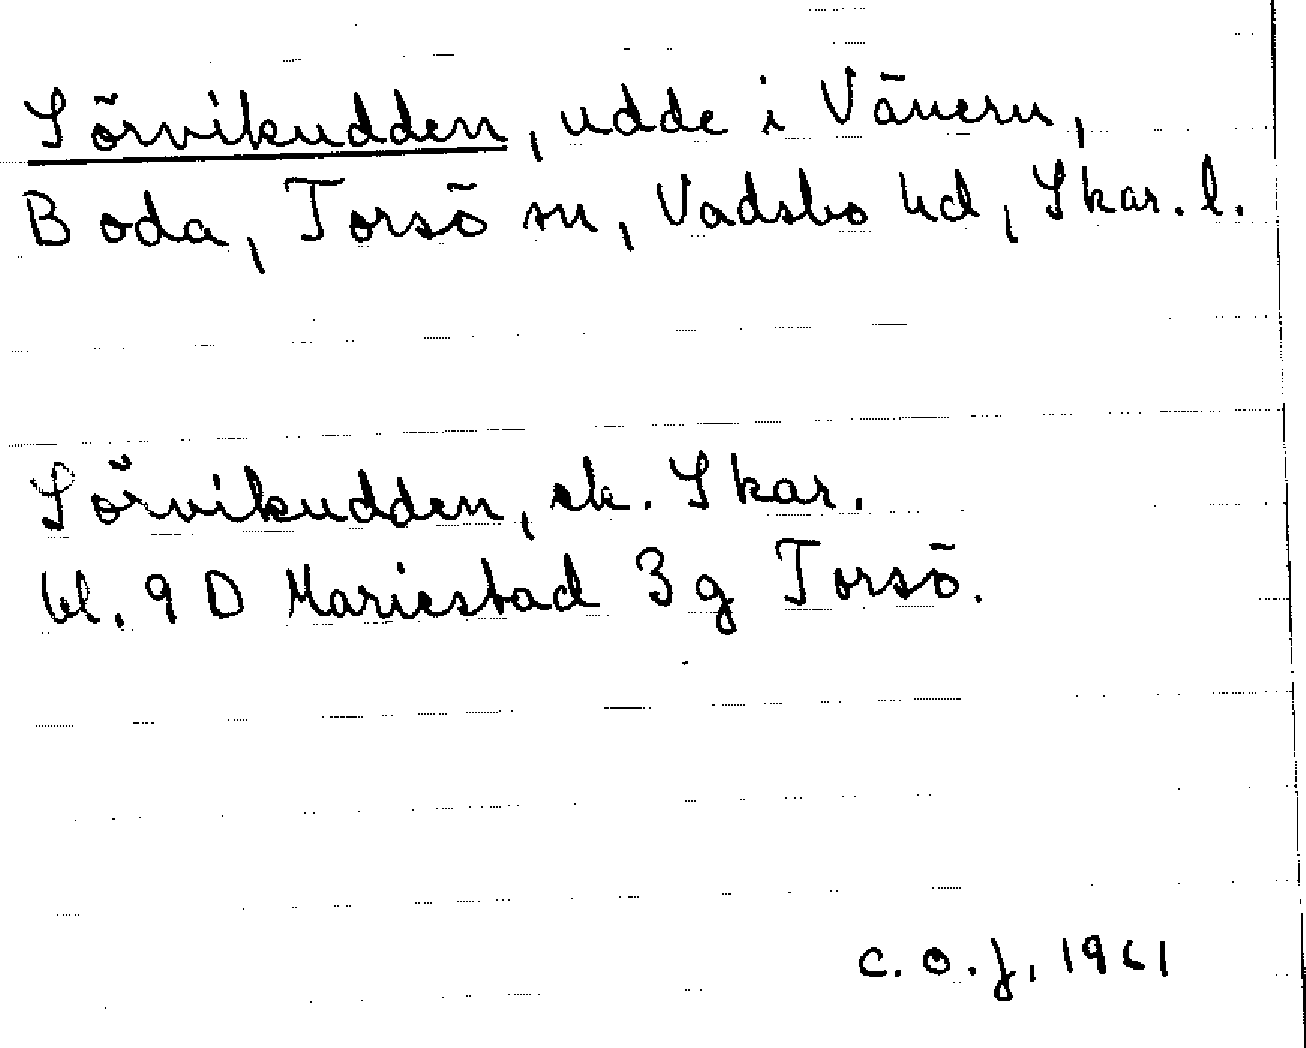 Sörvikudden, udde i Vänern,
Boda, Torsö sn, Vadsbo hd, Skar. l.
Sörvikudden, ek. Skar.
bl. 9 D Mariestad 3 g Torsö.
C. O. J. 1961